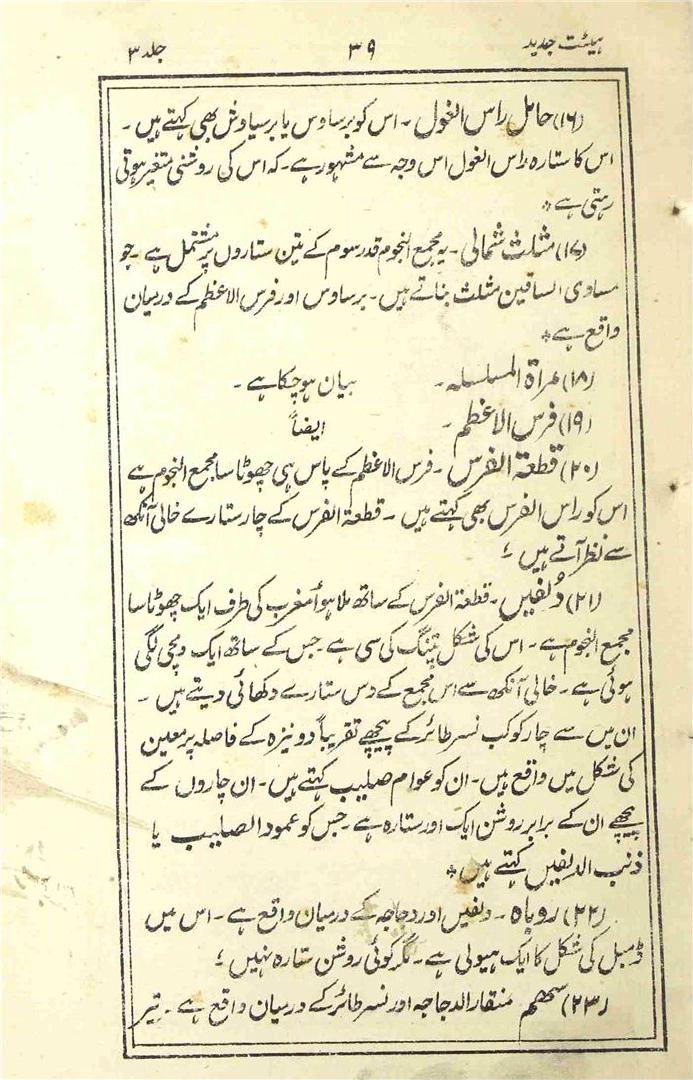 ہیئت جدید ۳۹ جلد ۳
(۱۶) حامل راس الغول ۔ اس کو برساوس یا برسیاوش بھی کہتے ہیں ۔
اس کا ستارہ راس الغول اس وجہ سے مشہور ہے ۔ کہ اس کی روشنی متغیر ہوتی
رہتی ہے *
(۱۷) مثلث شمالی ۔ یہ مجمع النجوم قدر سوم کے تین ستاروں پر مشتمل ہے ۔ جو
مساوی الساقین مثلث بناتے ہیں ۔ برساوس اور فرس الاعظم کے درمیان
واقع ہے *
(۱۸) مراۃ المسلسلہ ۔ بیان ہوچکا ہے ۔
(۱۹) فرس الاعظم ۔ ایضاً
(۲۰) قطعۃ الفرس ۔ فرس الاعظم کے پاس ہی چھوٹا سا مجمع النجوم ہے
اس کو راس الفرس بھی کہتے ہیں ۔ قطعۃ الفرس کے چار ستارے خالی آنکھ
سے نظر آتے ہیں ؛
(۲۱) دُلفیں ۔ قطعۃ الفرس کے ساتھ ملا ہوا مغرب کی طرف ایک چھوٹا سا
مجمع النجوم ہے ۔ اس کی شکل پتنگ کی سی ہے ۔ جس کے ساتھ ایک دمچی لگی
ہوئی ہے ۔ خالی آنکھ سے اس مجمع کے دس ستارے دکھائی دیتے ہیں ۔
ان میں سے چار کوکب نسر طائر کے پیچھے تقریباً دو نیزہ کے فاصلہ پر معین
کی شکل میں واقع ہیں ۔ ان کو عوام صلیب کہتے ہیں ۔ ان چاروں کے
پیچھے ان کے برابر روشن ایک اور ستارہ ہے ۔ جس کو عمود الصلیب یا
ذنب الدلفیں کہتے ہیں *
(۲۲) روباہ ۔ دلفیں اور دجاجہ کے درمیان واقع ہے ۔ اس میں
ڈمبل کی شکل کا ایک ہیولی ہے ۔ مگر کوئی روشن ستارہ نہیں ؛
(۲۳) سھم منقار الدجاجہ اور نسر طائر کے درمیان واقع ہے ۔ تیر